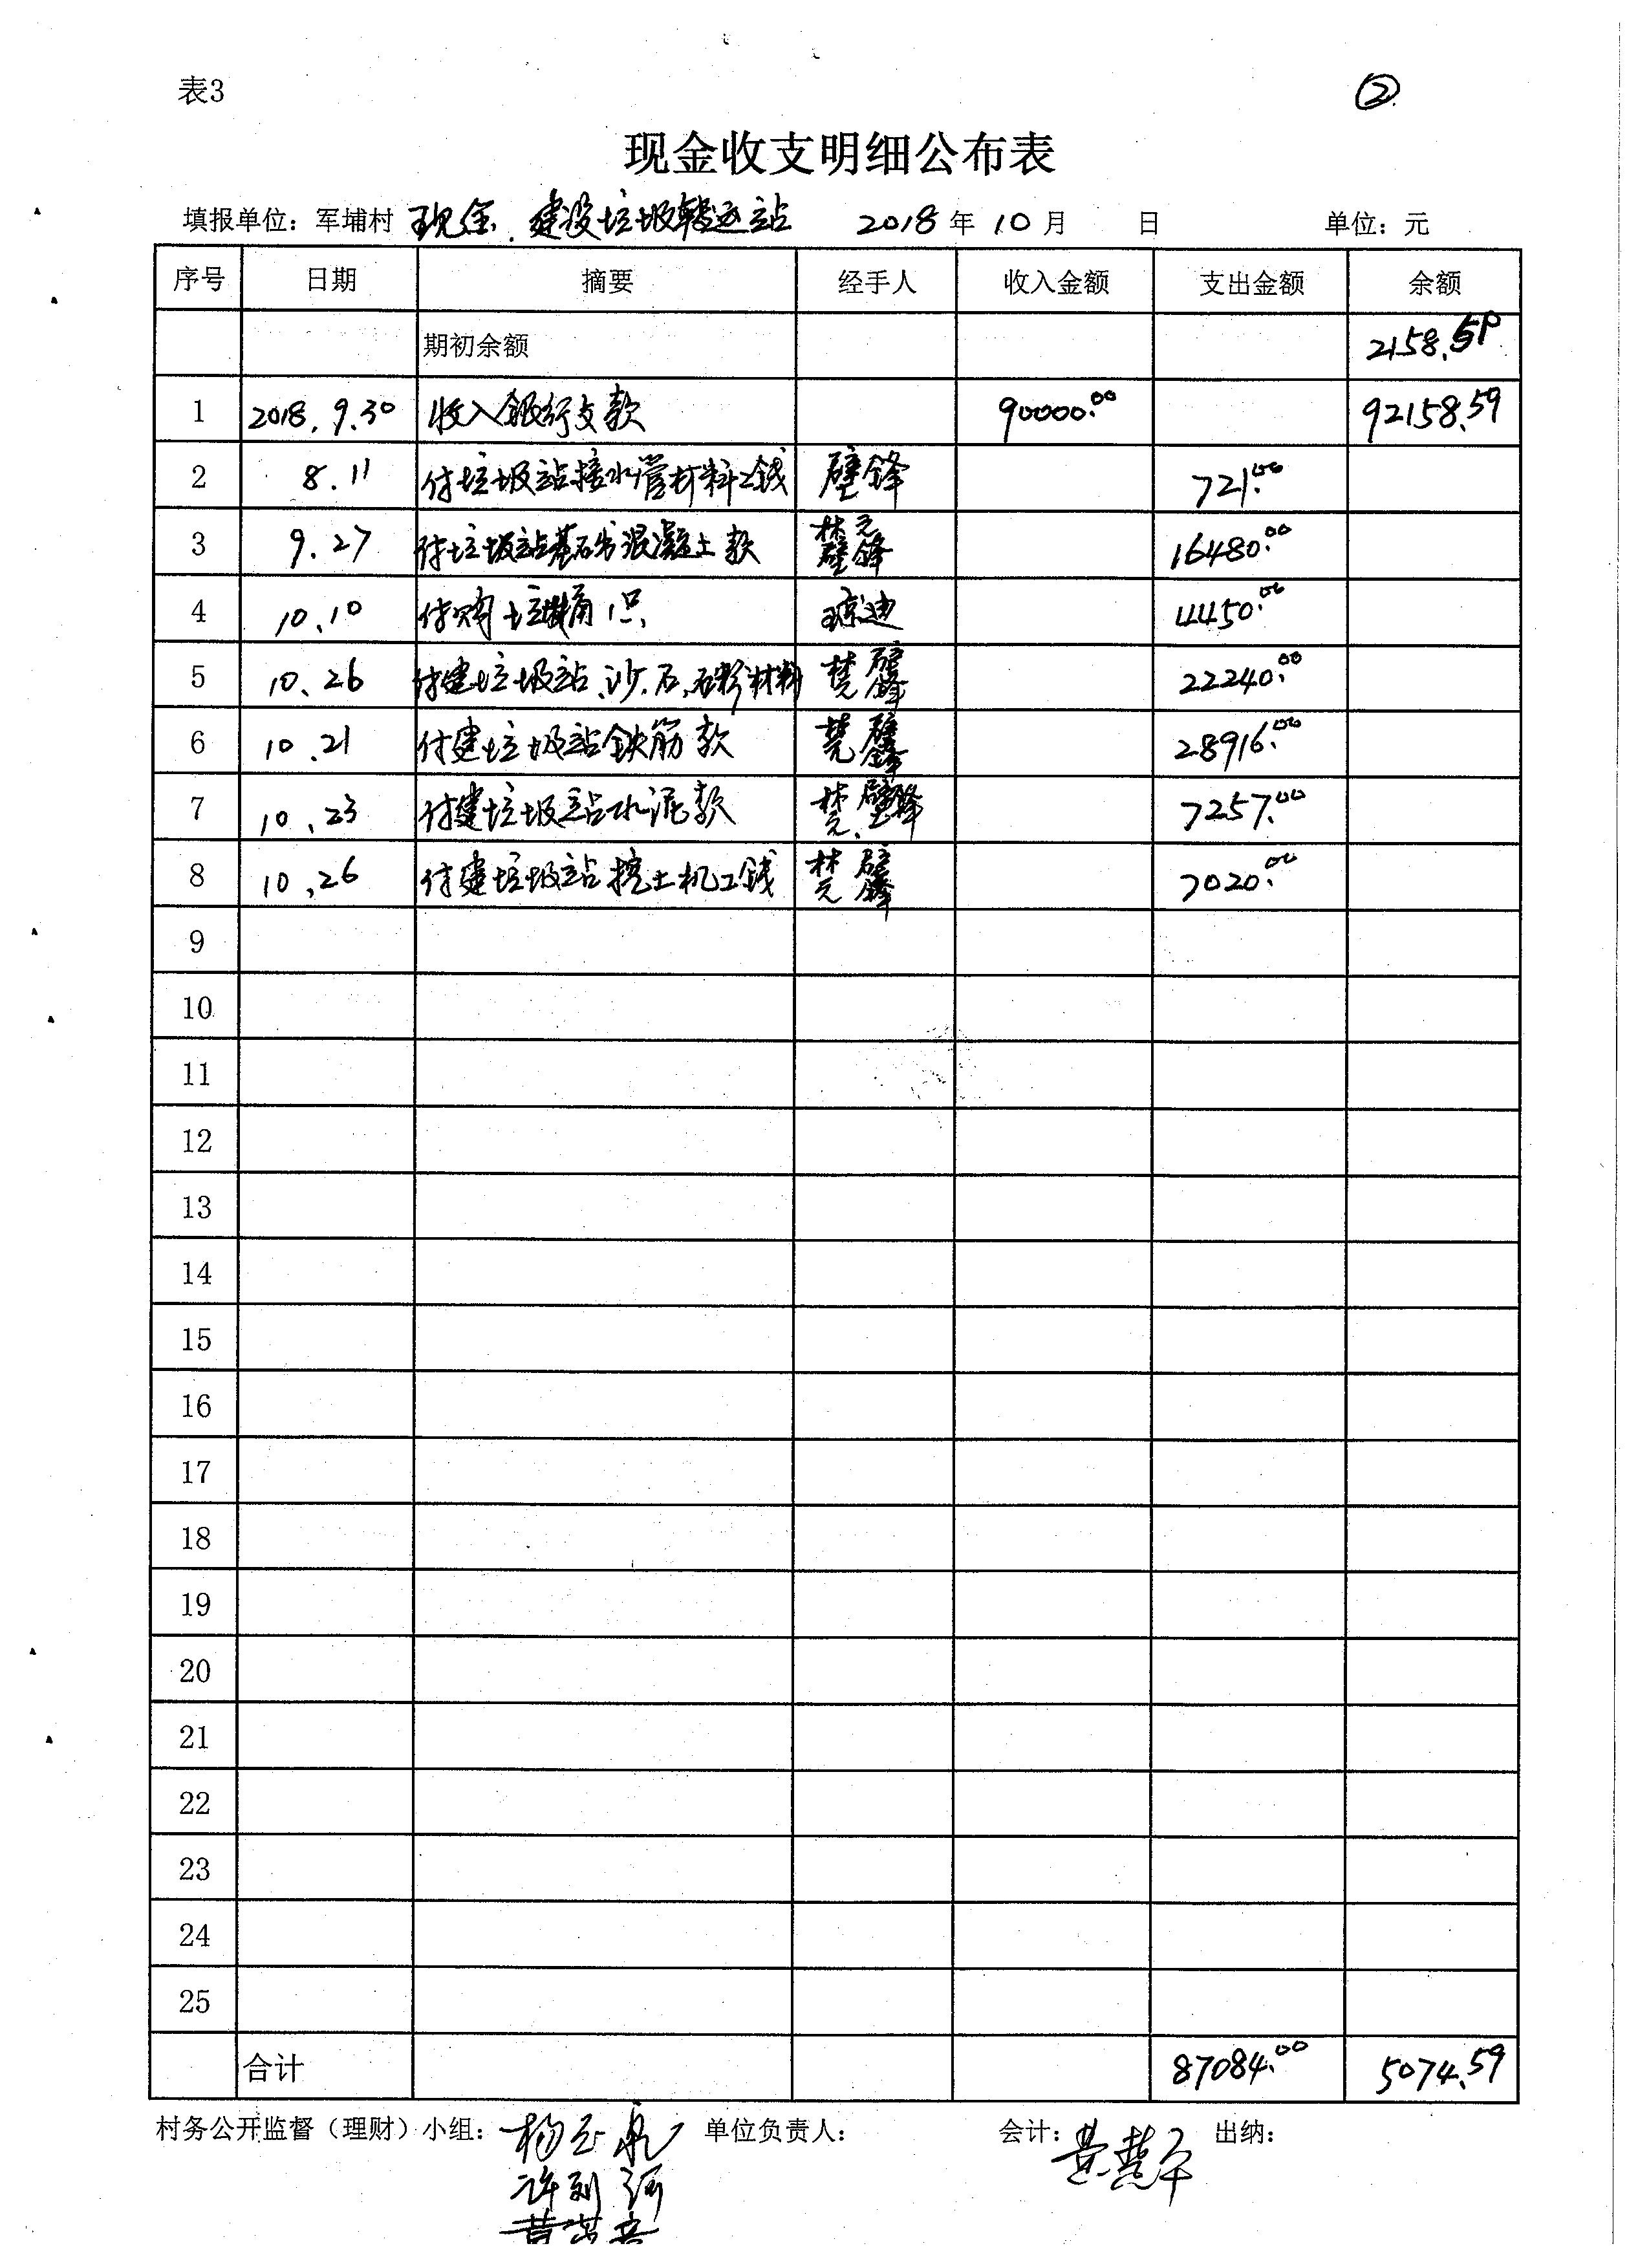 表3 ②
现金收支明细公布表
填报单位：军埔村 现金、建设垃圾转运站 2018年10月 日 单位：元
序号 日期 摘要 经手人 收入金额 支出金额 余额
期初余额 2158.59
1 2018.9.30 收入银行支款 90000.00 92158.59
2 8.11 付垃圾站接水管材料工钱 壁锋 721.00
3 9.27 付垃圾站基础混凝土款 壁锋 16480.00
4 10.10 付购垃圾桶1只 琼迪 4450.00
5 10.26 付建垃圾站、沙、石、石粉材料 壁锋 22240.00
6 10.21 付建垃圾站铁筋款 壁锋 28916.00
7 10.23 付建垃圾站水泥款 壁锋 7257.00
8 10.26 付建垃圾站挖土机工钱 壁锋 7020.00
9
10
11
12
13
14
15
16
17
18
19
20
21
22
23
24
25
合计 87084.00 5074.59
村务公开监督（理财）小组： 单位负责人： 会计： 出纳：